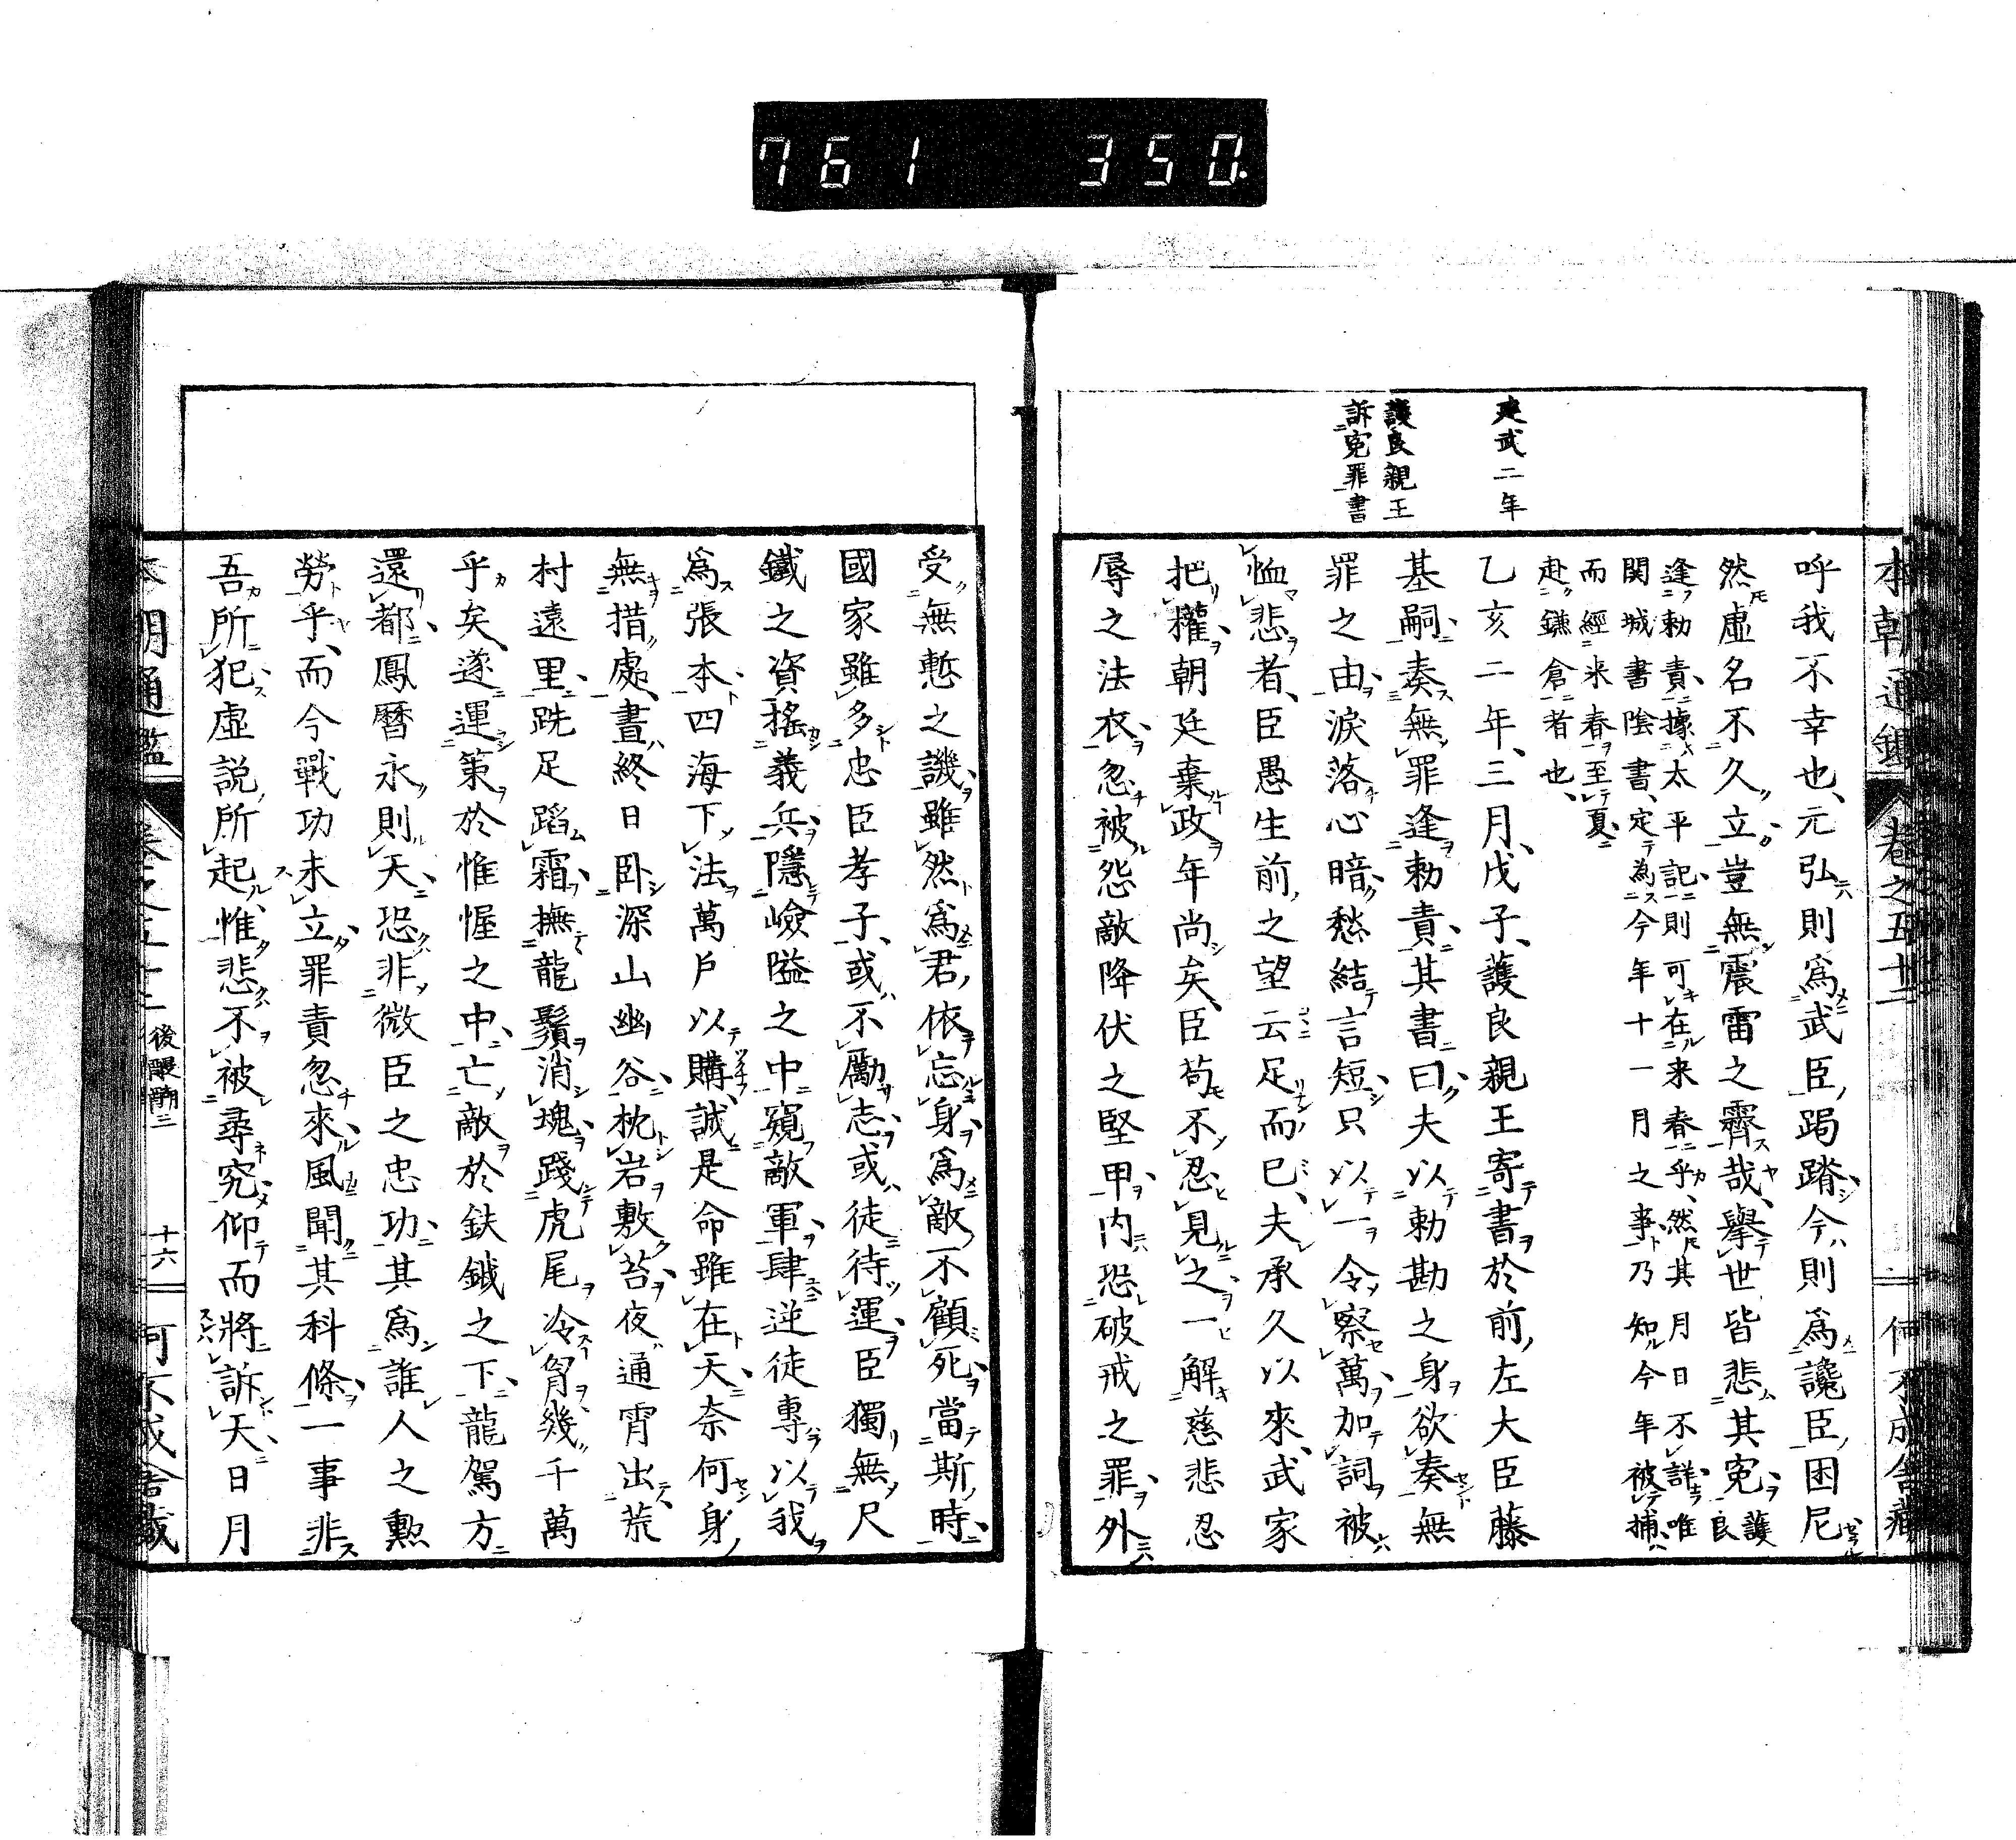 761 350.
本朝通鑑 卷之五十二 何不成舎藏
建武二年
護良親王
訴寃罪書
呼我不幸也、元弘則爲武臣跼蹐今則爲讒臣困尼
然虛名不久立豈無震雷之霽哉、擧世皆悲其寃護良
逢勅責據太平記則可在来春乎、然其月日不詳唯
関城書陰書、定為今年十一月之事乃知今年被捕
而經米春至夏
赴鎌倉者也、
乙亥二年、三月、戊子、護良親王寄書於前左大臣藤
基嗣奏無罪逢勅責其書曰夫以勅勘之身欲奏無
罪之由淚落心暗愁結言短只以一令察萬加詞被
恤悲者、臣愚生前之望云足而已、夫承久以來武家
把權朝廷棄政年尚矣、臣苟不忍見之一解慈悲忍
辱之法衣忽被怨敵降伏之堅甲内恐破戒之罪外
受無慙之譏雖然爲君依忘身爲敵不顧死當斯時
國家雖多忠臣孝子或不勵志或徒待運臣獨無尺
鐵之資搖義兵隱嶮隘之中窺敵軍肆逆徒專以我
爲張本四海下法萬戶以購誠是命雖在天奈何身
無措處晝終日卧深山幽谷枕岩敷苔夜通霄出荒
村遠里跣足蹈霜撫龍鬚消塊踐虎尾冷胷幾千萬
乎矣、遂運策於惟幄之中亡敵於鈇鉞之下龍駕方
還都鳳曆永則天恐非微臣之忠功其爲誰人之勲
勞乎、而今戰功未立罪責忽來風聞其科條一事非
吾所犯虛説所起惟悲不被尋究仰而將訴天日月
本朝通鑑 卷之五十二 後醍醐二 十六 何不成舎藏